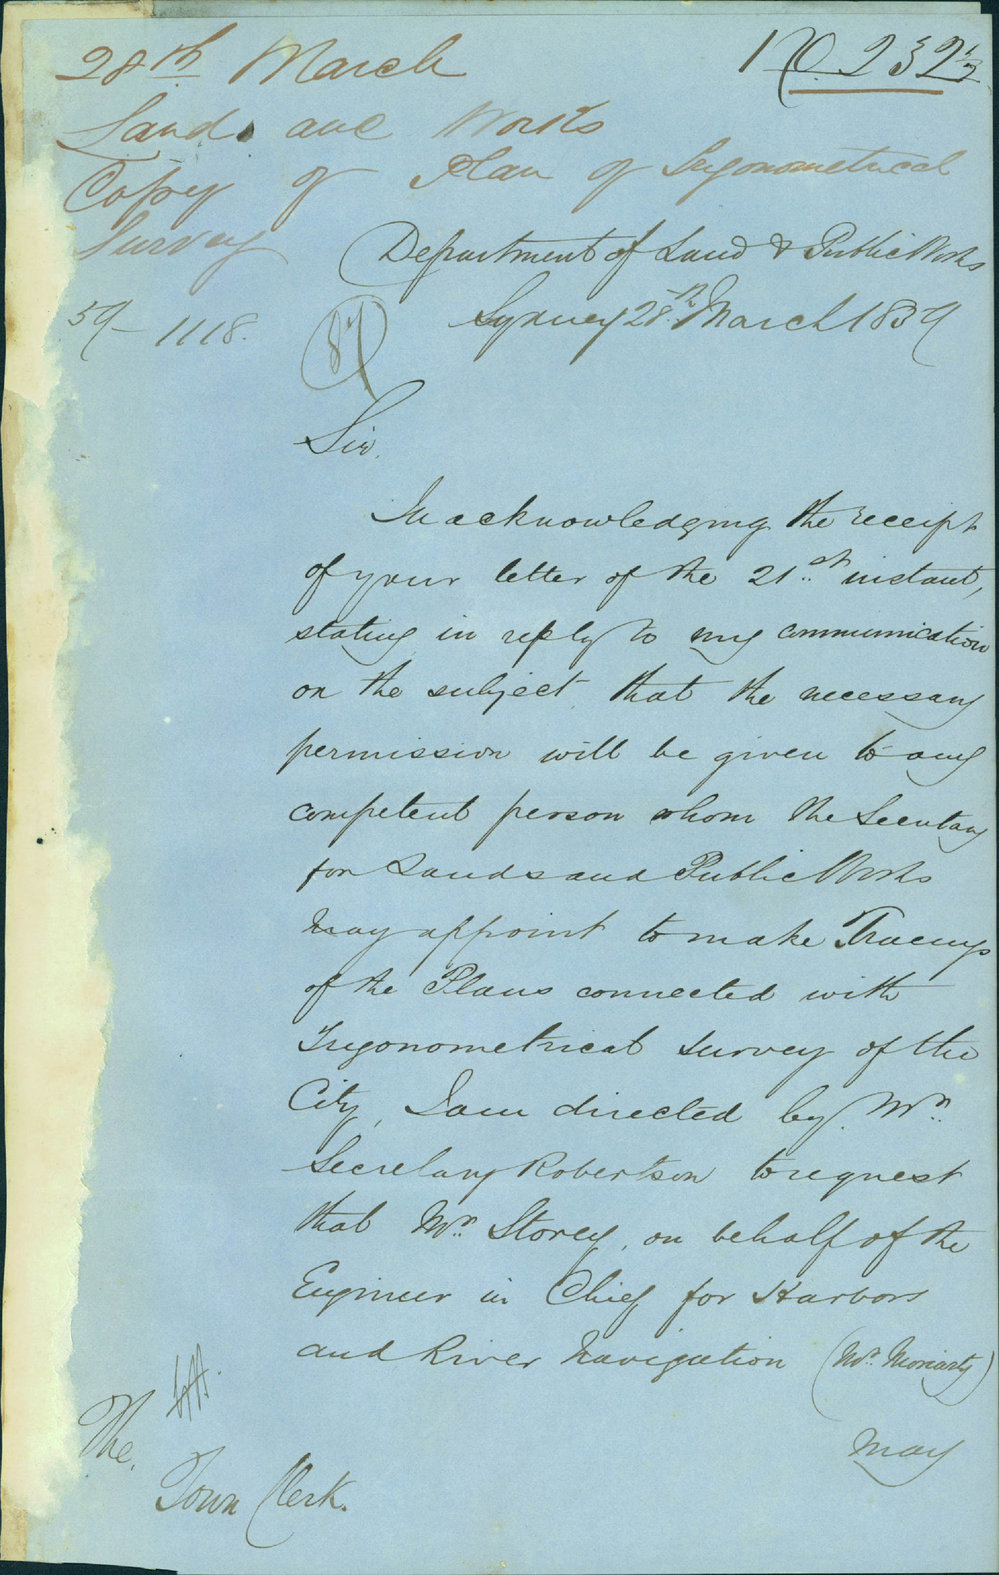 28th March
No 232½
Lands and Works
Copy of Plan of Trigonometrical
Survey
Department of Land & Public Works
59-1118.
87
Sydney 28th March 1859
Sir,
In acknowledging the receipt
of your letter of the 21st instant,
stating in reply to my communication
on the subject, that the necessary
permission will be given to any
competent person whom the Secretary
for Lands and Public Works
may appoint to make Tracings
of the Plans connected with
Trigonometrical Survey of the
City, I am directed by Mr.
Secretary Robertson to request
that Mr. Storey, on behalf of the
Engineer in Chief for Harbors
and River Navigation (Mr. Moriarty)
may
The
Town Clerk.